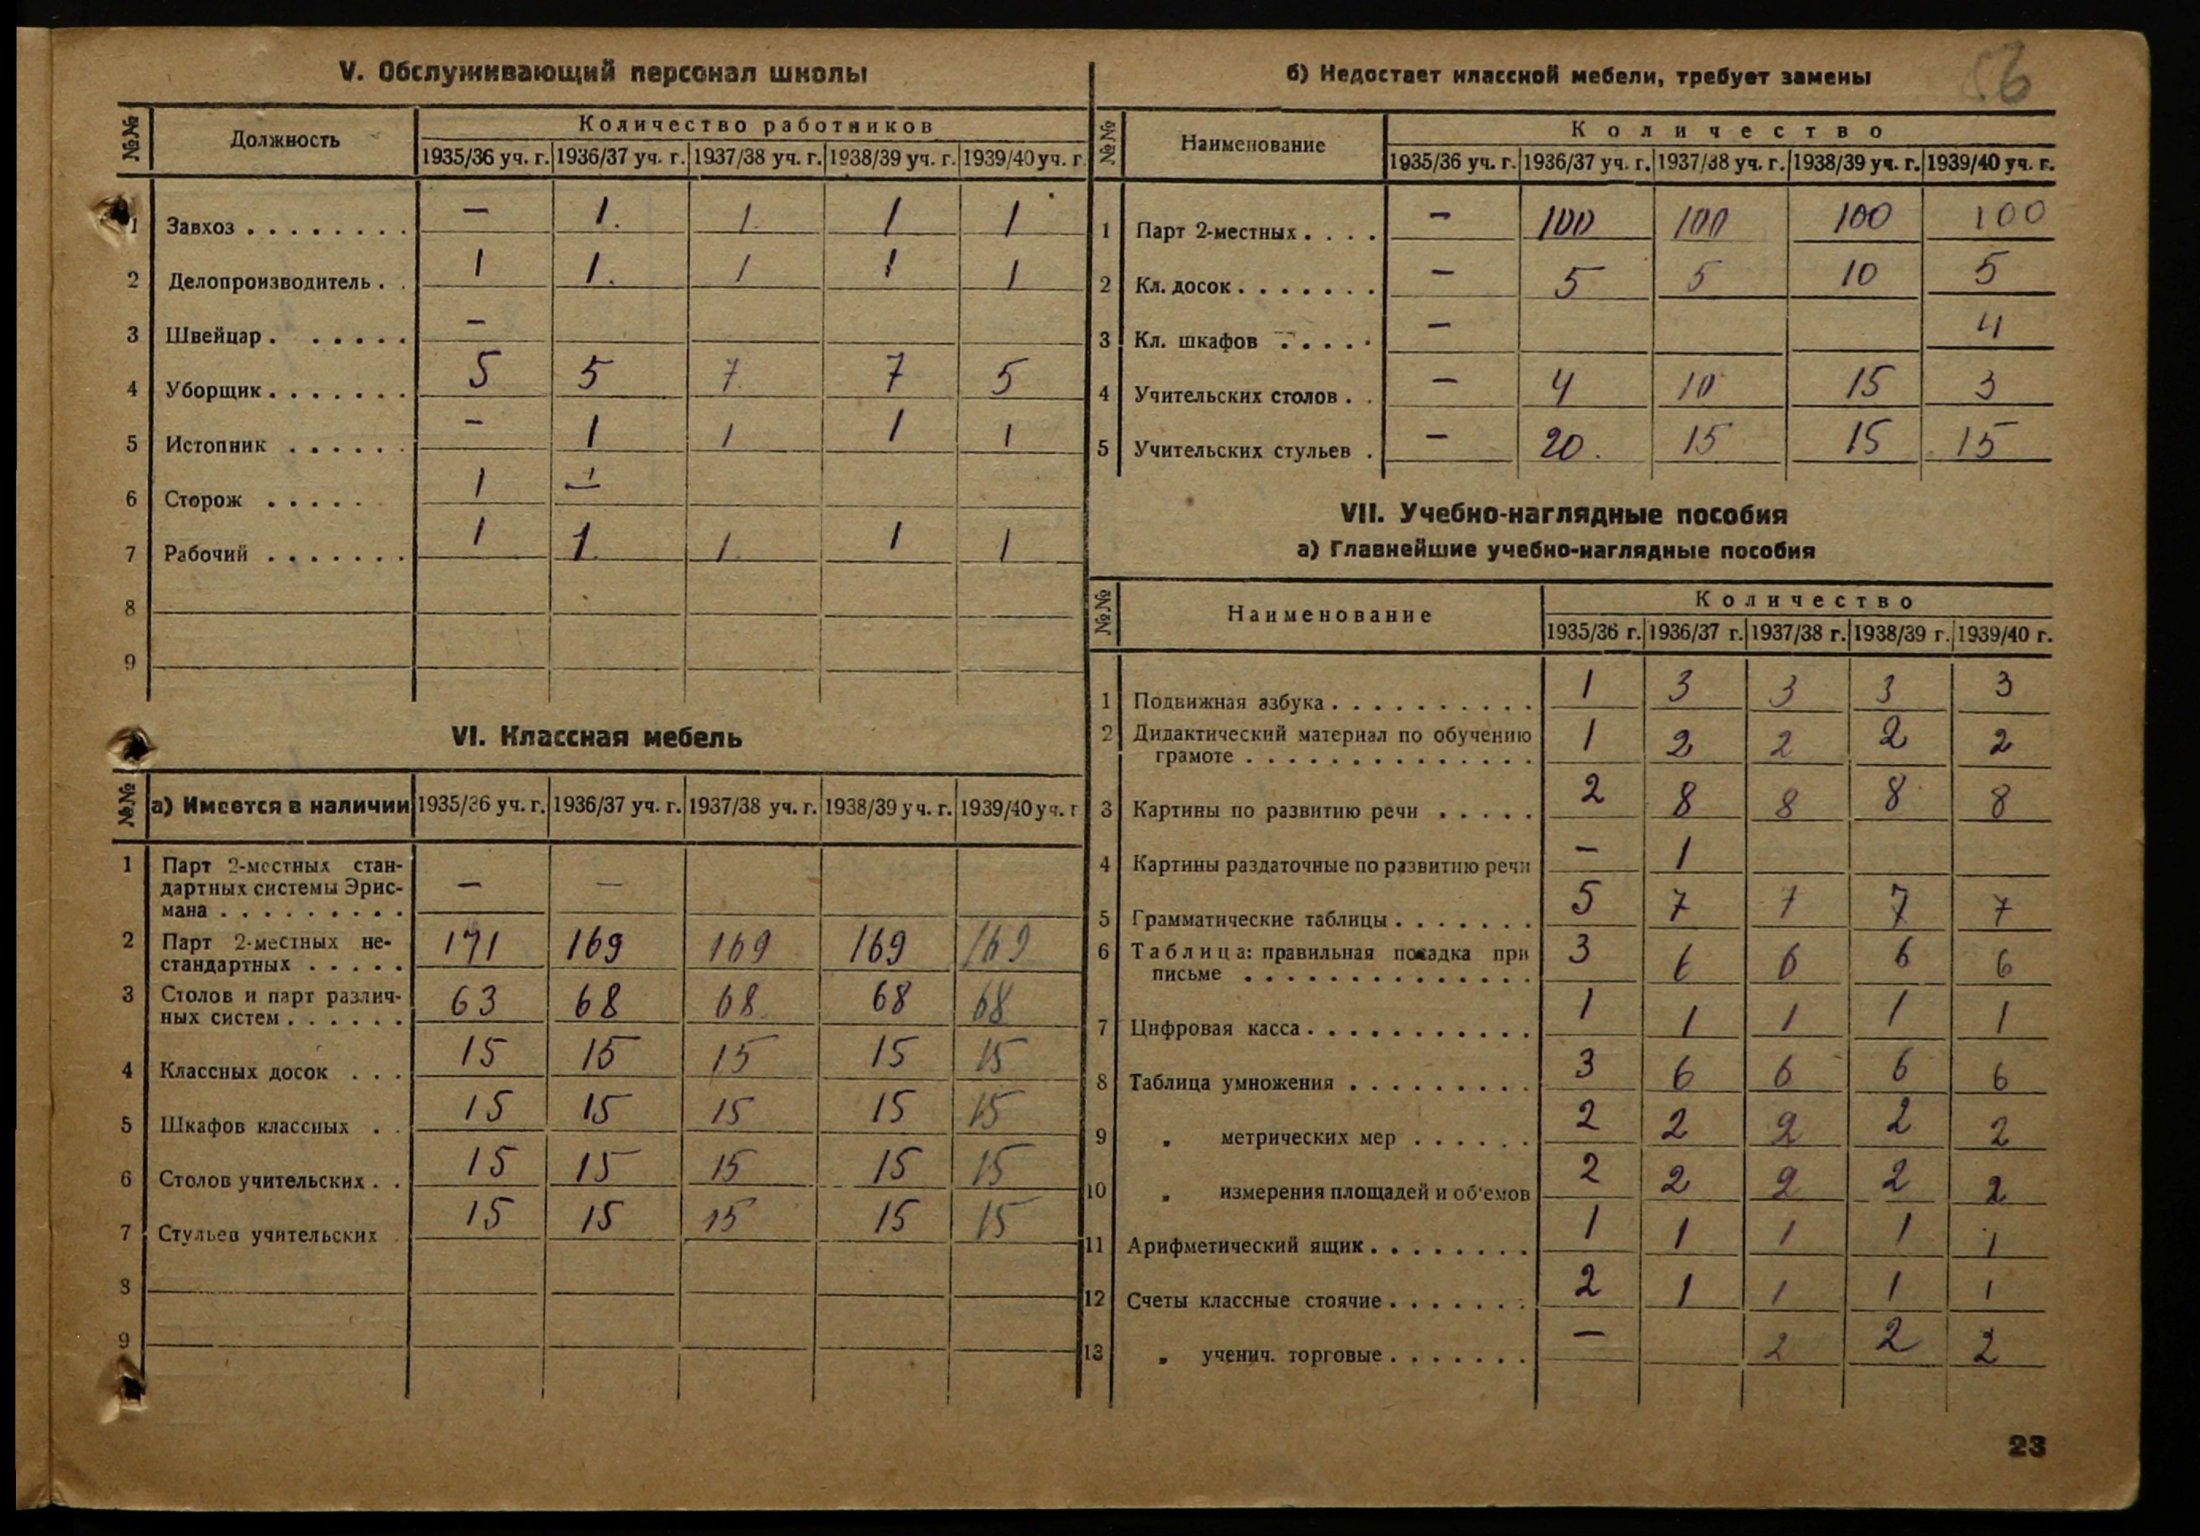 V. Обслуживающий персонал школы
№№ Должность Количество работников
1935/36 уч. г. 1936/37 уч. г. 1937/38 уч. г. 1938/39 уч. г. 1939/40 уч. г.
1 Завхоз . . . . . . . . — 1. 1. 1 1
2 Делопроизводитель . . 1 1. 1 1 1
3 Швейцар . . . . . . —
4 Уборщик . . . . . . . 5 5 7. 7 5
5 Истопник . . . . . . — 1 1 1 1
6 Сторож . . . . . 1 1
7 Рабочий . . . . . . . 1 1. 1. 1 1
8
9
VI. Классная мебель
№№ а) Имеется в наличии 1935/36 уч. г. 1936/37 уч. г. 1937/38 уч. г. 1938/39 уч. г. 1939/40 уч. г
1 Парт 2-местных стан-
дартных системы Эрис-
мана . . . . . . . . . — —
2 Парт 2-местных не-
стандартных . . . . . 171 169 169 169 169
3 Столов и парт различ-
ных систем . . . . . . 63 68 68 68 68
4 Классных досок . . . 15 15 15 15 15
5 Шкафов классных . . 15 15 15 15 15
6 Столов учительских . . 15 15 15 15 15
7 Стульев учительских . 15 15 15 15 15
8
9
б) Недостает классной мебели, требует замены
№№ Наименование Количество
1935/36 уч. г. 1936/37 уч. г. 1937/38 уч. г. 1938/39 уч. г. 1939/40 уч. г.
1 Парт 2-местных . . . . — 100 100 100 100
2 Кл. досок . . . . . . . — 5 5 10 5
3 Кл. шкафов . . . . . — 4
4 Учительских столов . . — 4 10 15 3
5 Учительских стульев . — 20. 15 15 15
VII. Учебно-наглядные пособия
а) Главнейшие учебно-наглядные пособия
№№ Наименование Количество
1935/36 г. 1936/37 г. 1937/38 г. 1938/39 г. 1939/40 г.
1 Подвижная азбука . . . . . . . . . . 1 3 3 3 3
2 Дидактический материал по обучению
грамоте . . . . . . . . . . . . . . 1 2 2 2 2
3 Картины по развитию речи . . . . . 2 8 8 8 8
4 Картины раздаточные по развитию речи — 1
5 Грамматические таблицы . . . . . . . 5 7 7 7 7
6 Таблица: правильная посадка при
письме . . . . . . . . . . . . . . 3 6 6 6 6
7 Цифровая касса . . . . . . . . . . . 1 1 1 1 1
8 Таблица умножения . . . . . . . . . 3 6 6 6 6
9 „ метрических мер . . . . . . 2 2 2 2 2
10 „ измерения площадей и об'емов 2 2 2 2 2
11 Арифметический ящик . . . . . . . . 1 1 1 1 1
12 Счеты классные стоячие . . . . . . . 2 1 1 1 1
13 „ ученич. торговые . . . . . . . — 2 2 2
23